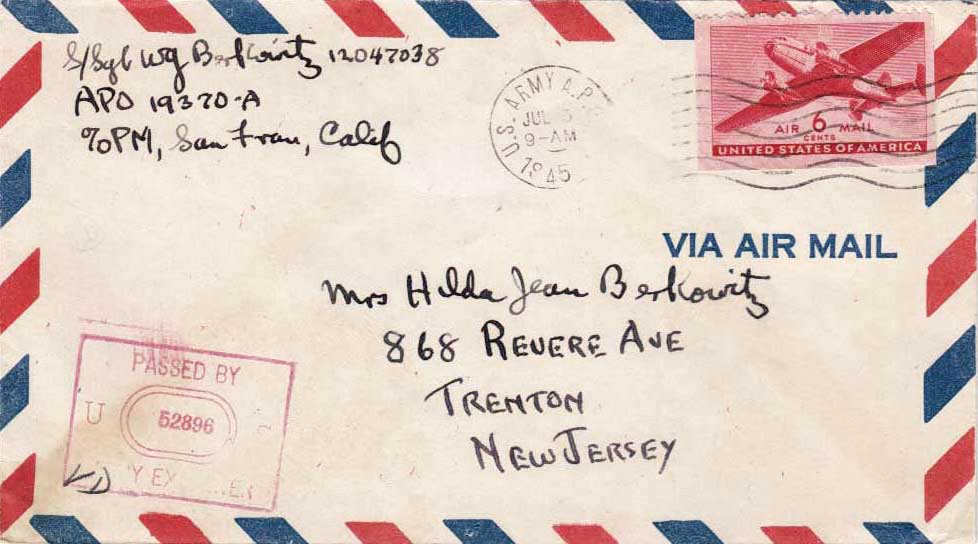 S/Sgt WG Berkowitz 12047038
APO 19370-A
℅PM, San Fran, Calif
U.S. ARMY A.P.
JUL
9-AM
1945
AIR 6 MAIL
CENTS
UNITED STATES OF AMERICA
VIA AIR MAIL
Mrs Hilda Jean Berkowitz
868 REVERE AVE
TRENTON
NEW JERSEY
PASSED BY
U
52896
Y EX